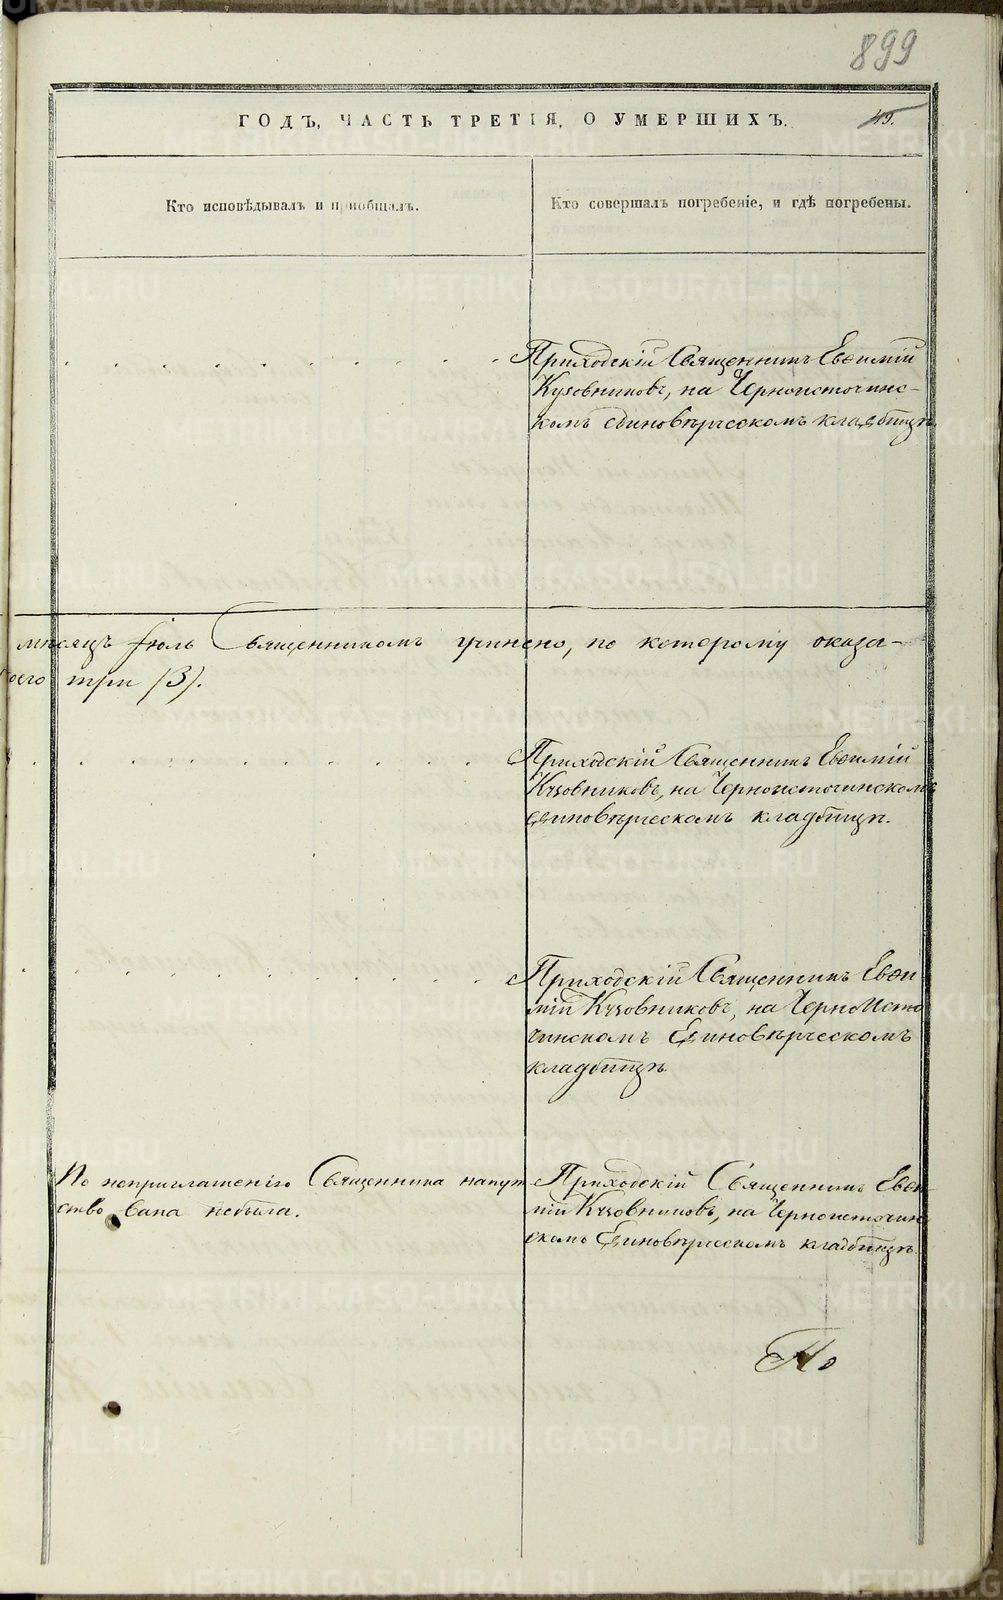 899
ГОДЪ, ЧАСТЬ ТРЕТІЯ, О УМЕРШИХЪ.
45.
Кто исповѣдывалъ и пріобщалъ.
Кто совершалъ погребеніе, и гдѣ погребены.
Приходскій Священникъ Евѳимій
Кузовниковъ, на Черноисточинс-
комъ единовѣрческомъ кладбищѣ.
мѣсяцъ Іюль Священникомъ учинено, по которому оказа-
три (3).
Приходскій Священникъ Евѳимій
Кузовниковъ, на Черноисточинскомъ
единовѣрческомъ кладбищѣ.
Приходскій Священникъ Евѳи
мій Кузовниковъ, на Черноисто
чинскомъ Единовѣрческомъ
кладбищѣ
По неприглашенію Священника напут
ствована небыла.
Приходскій Священникъ Евѳи
мій Кузовниковъ, на Черноисточин
скомъ Единовѣрческомъ кладбищѣ.
METRIKI.GASO-URAL.RU